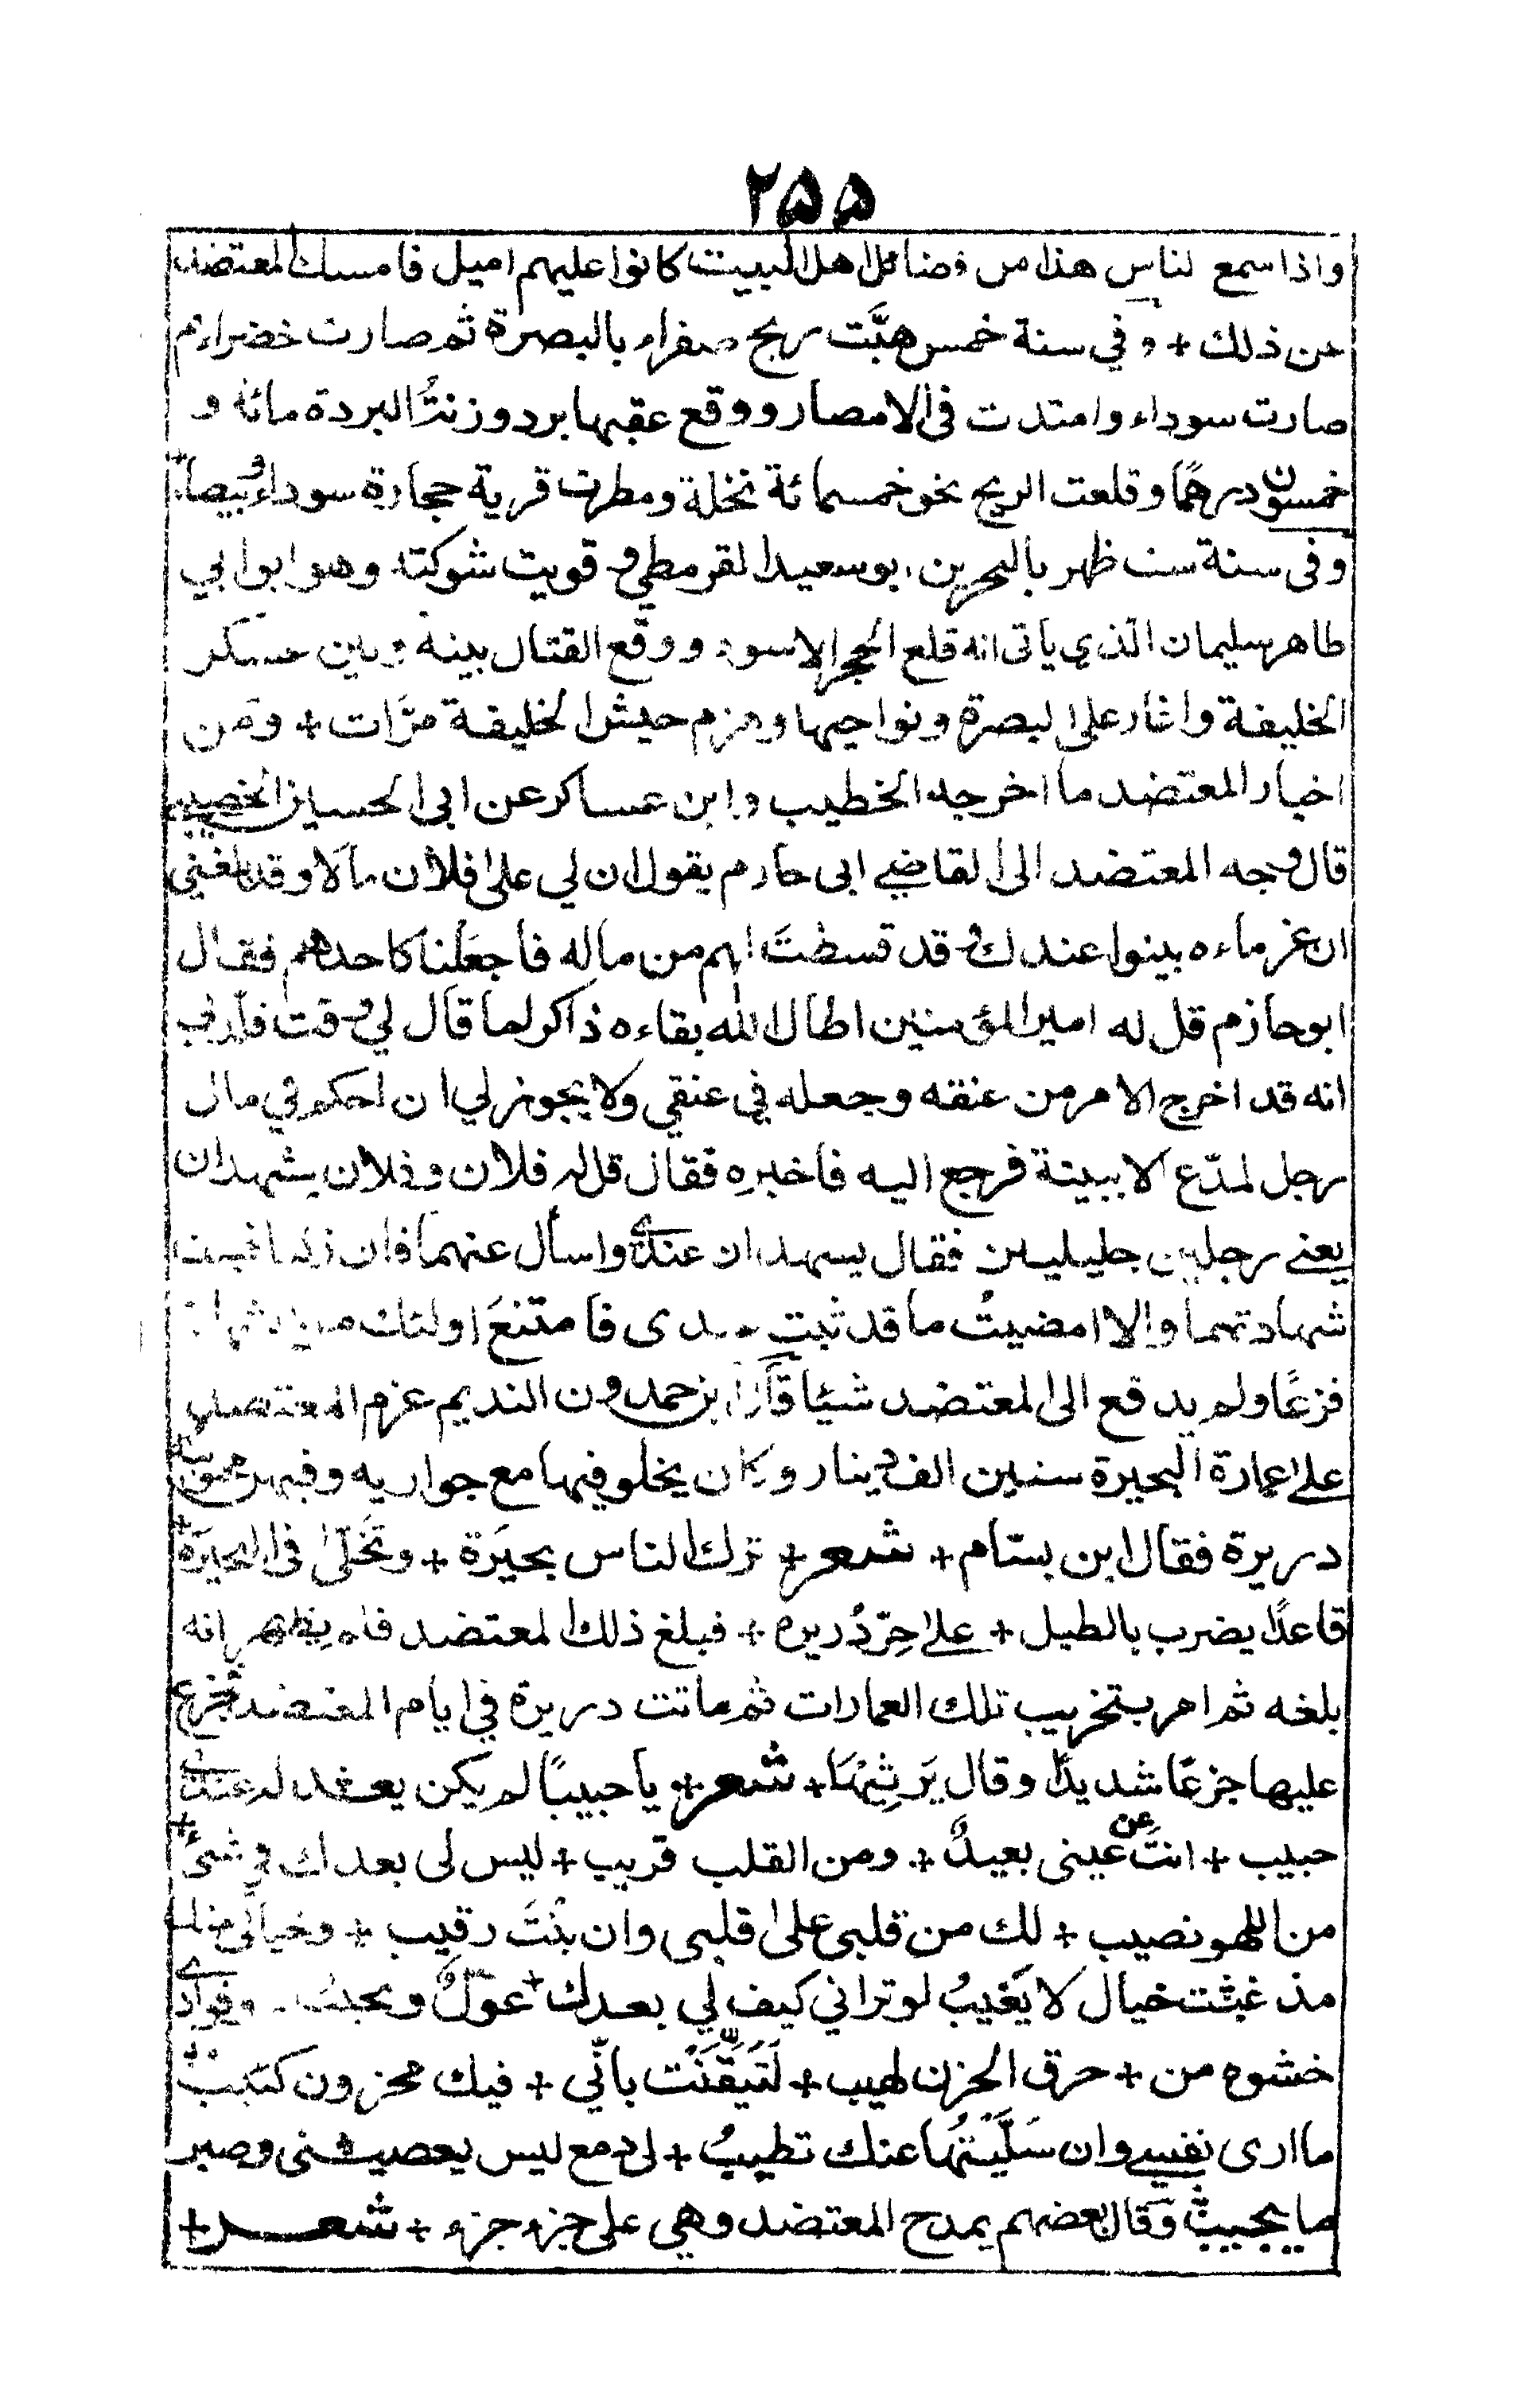 ۲۵۵
واذا سمع الناس هذا من فضائل اهل البيت كانوا عليهم اميل فامسك المعتضد
عن ذلك + وفي سنة خمس هبَّت ريح صفراء بالبصرة ثم صارت خضراء ثم
صارت سوداء وامتدت فى الامصار ووقع عقبها برد وزنتُ البردة مائة و
خمسون درهمًا وقلعت الريح نحو خمسمائة نخلة ومطرت قرية حجارة سوداء وبيضاء +
وفى سنة ست ظهر بالبحرين ابوسعيد القرمطي وقويت شوكته وهو ابو ابي
طاهر سليمان الذي ياتى انه قلع الحجر الاسود ووقع القتال بينه وبين عسكر
الخليفة واغار على البصرة ونواحيها وهزم جيش الخليفة مرَّات + ومن
اخبار المعتضد ما اخرجه الخطيب وابن عساكر عن ابى الحسين الخصيبي
قال وجه المعتضد الى القاضي ابى حازم يقول ان لي على فلان مالا وقد بلغني
ان غرماءه بينوا عندك وقد قسطتَ لهم من ماله فاجعَلنا كاحدهم فقال
ابوحازم قل له امير المؤمنين اطال الله بقاءه ذاكر لما قال لي وقت قلدني
انه قد اخرج الامر من عنقه وجعله في عنقي ولا يجوز لي ان احكم في مال
رجل لمدّع الا ببينة فرجع اليه فاخبره فقال قل له فلان وفلان يشهدان
يعنے رجلين جليلين فقال يشهدان عندى واسأل عنهما فان زكيا قبلت
شهادتهما والا امضيتُ ما قد ثبت عندى فامتنعَ اولئك من الشهادة
فزعًا ولم يدفع الى المعتضد شيئا قال ابن حمدون النديم غرم المعتضد
على عمارة البحيرة ستين الف دينار وكان يخلو فيها مع جواريه وفيهن محبوبته
دريرة فقال ابن بسّام + شعر + ترك الناس بحيَرة + وتَخلّى فى البحيَرة +
قاعدًا يضرب بالطبل + على حِرّ دُريره + فبلغ ذلك المعتضد فلم يظهر انه
بلغه ثم امر بتخريب تلك العمارات ثم ماتت دريرة في ايام المعتضد فجزع
عليها جزعًا شديدًا وقال يَرثِيْهَا + شعر + يا حبيبًا لم يكن يعدله عندى
حبيب + انتَ عن عينى بعيدٌ + ومن القلب قريب + ليس لى بعدك في شئ +
من اللهو نصيب + لك من قلبى على قلبى وان بنْتَ رقيب + وخيالى منك
مذ غبتَ خيال لا يَغيبُ لو ترانى كيف لي بعدك + عولٌ ونحيب وفوادى
حشوه من + حرق الحزن لهيب + لَتَيَقَّنْتَ بانّى + فيك محزون كئيب +
ما ارى نفسي وان سَلَّيْتُها عنك تطيبُ + لى دمع ليس يعصينى وصبر
ما يجيبُ وقال بعضهم يمدح المعتضد وهي على جزء جزء + شعر +